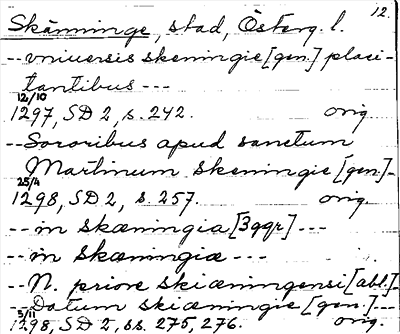 12.
Skänninge, stad, Österg. l.
-- vniuersis skeningie [gen.] placi-
tantibus ---
12/10
1297, SD 2, s. 242. orig.
-- Sororibus apud sanctum
Martinum skeningie [gen.] -
25/4
1298, SD 2, s. 257. orig.
-- in skæningia [3ggr] ---
-- in skæningiæ ---
-- N. priore skiæningensi [abl.] -
-- Datum skiæningie [gen.] --
5/11
1298, SD 2, ss. 275, 276. orig.